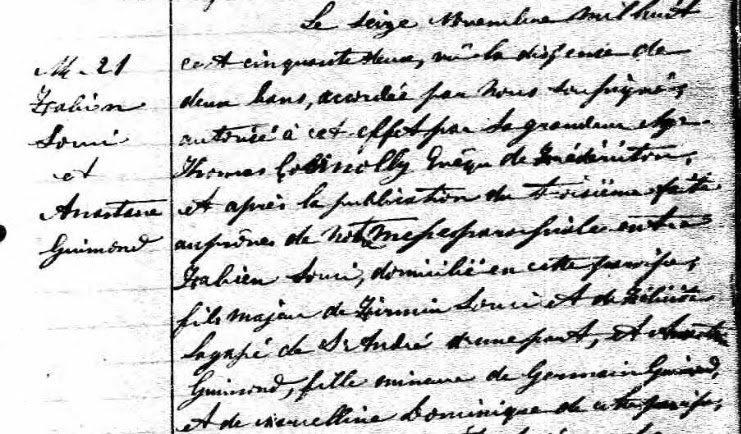 Le seize Novembre mil huit
M-21
Fabien
Souci
et
Anastasie
Guimond
cent cinquante deux, vû la dispense de
deux bans, accordée par Nous soussigné,
autorisé à cet effet par sa grandeur Mgr
Thomas Connolly Evêque de Frédéricton,
et après la publication du troisième faite
au prônes de notre Messe paroissiale entre
Fabien Souci, domicilié en cette paroisse,
fils majeur de Firmin Souci et de Félicité
Lagacé de St André d'une part, et
Guimond, fille mineure de Germain Guimond,
et de Marcelline Dominique de cette paroisse,